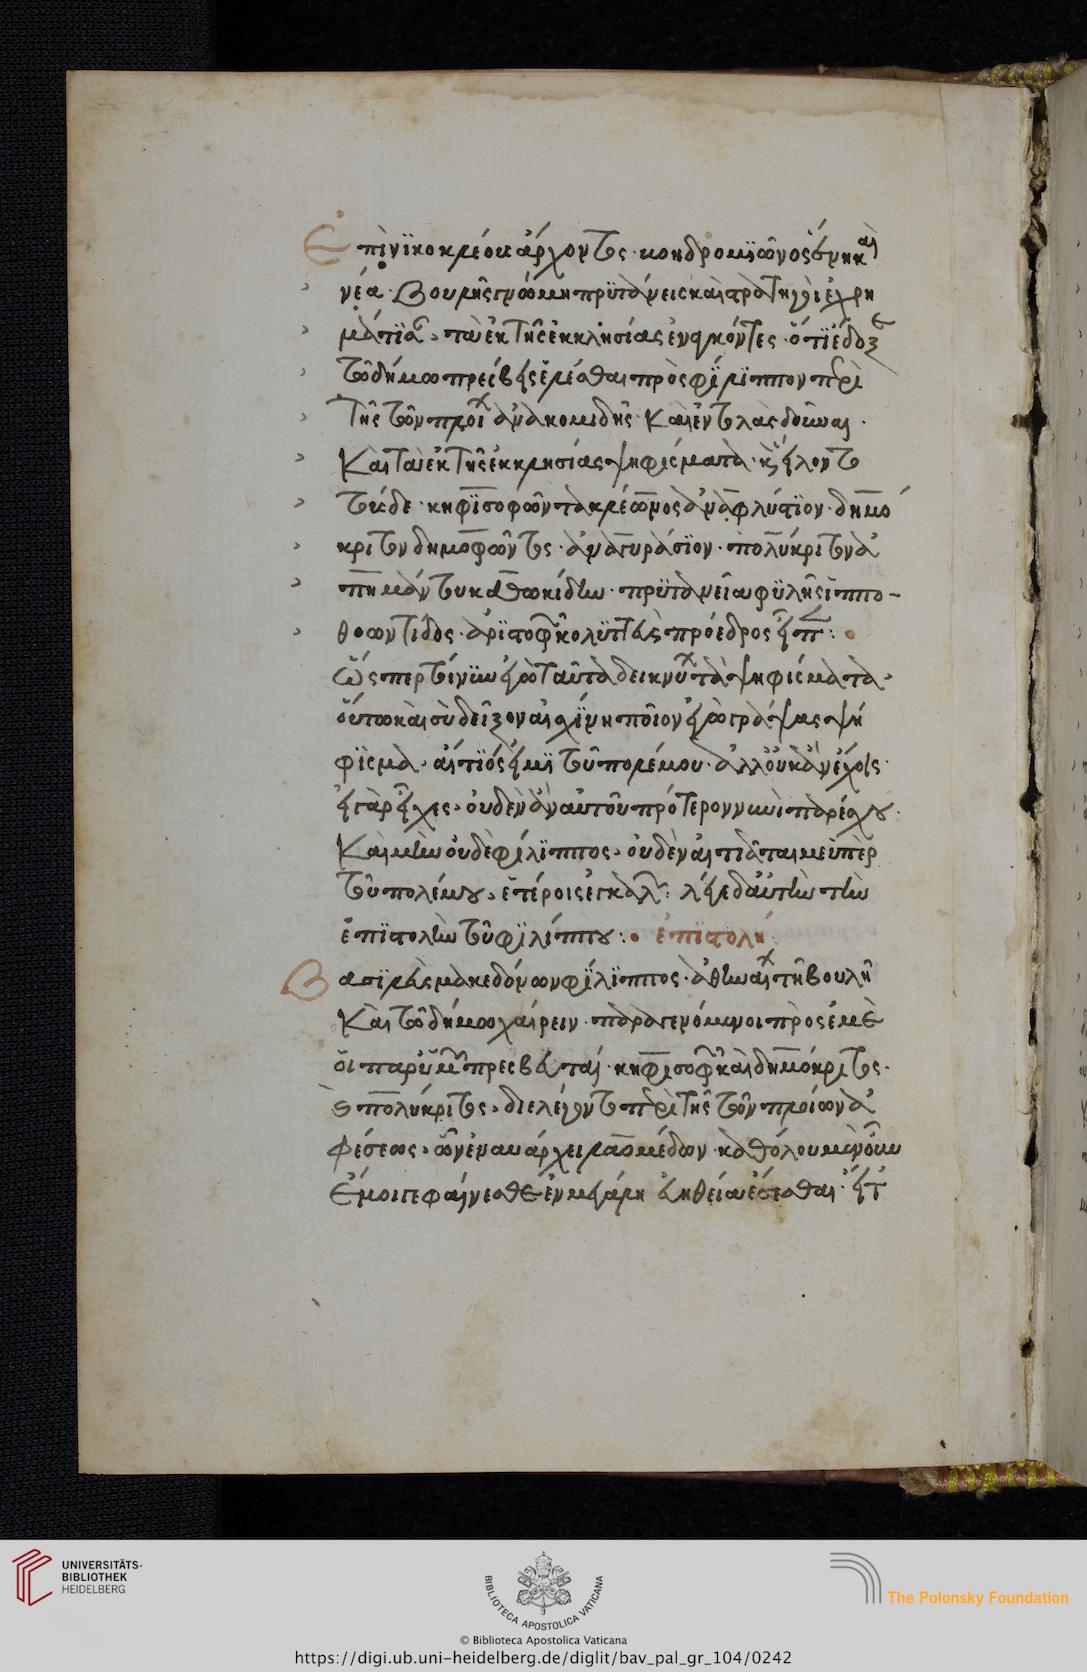 Ἐπὶ νϊκοκλέους ἄρχοντος · κοηδρομϊῶνος ἕνηκαὶ
νέα · βουλῆς γνώμη πρϋτάνεις καὶ στρατηγοὶ ἐχρη
μάτϊσαν, τὰ ἐκ τῆς ἐκκλησίας ἐνεγκόντες · ὅτϊ ἔδοξε
τῶ δήμω πρέσβεις ἑλέσθαι πρὸς φίλϊππον περὶ
τῆς τῶν πλοίων ἀνακομιδῆς · καὶ ἐντολὰς δοῦναι ·
καὶ τὰ ἐκ τῆς ἐκκλησίας ψηφίσματα · καὶ εἵλοντο
τούσδε · κηφϊσοφῶντα κλέωνος ἀναφλύστϊον · δημό
κριτον δημοφῶντος · ἀναγυράσϊον · πολύκριτον ἀ
πημάντου κοθωκίδην · πρϋτανεία φϋλῆς ἱππο-
θοωντίδος · ἀρϊστοφῶν κολϋττεὺς πρόεδρος εἶπεν :
ὥσπερ τοίνϋν ἐγὼ ταῦτα δεικνύω τὰ ψηφίσματα ·
οὕτω καὶ σὺ δεῖξον αἰσχίνη ποῖον ἐγὼ γράψας ψή
φϊσμα · αἴτϊός εἰμϊ τοῦ πολέμου · ἀλλ οὐκ ἂν ἔχοις ·
εἰ γὰρ εἶχες, οὐδὲν ἂν αὐτοῦ πρότερον νυνὶ παρέσχου ·
καὶ μὴν οὐδὲ φίλϊππος, οὐδὲν αἰτιᾶται με ὑπὲρ
τοῦ πολέμου, ἑτέροις ἐγκαλῶν : λέγε δ αὐτὴν τὴν
ἐπϊστολὴν τοῦ φϊλίππου : · ἐπϊστολή
Βασϊλεὺς μακεδόνων φίλϊππος · ἀθηναίων τῆ βουλῆ
καὶ τῶ δήμω χαίρειν · παραγενόμενοι πρὸς ἐμὲ
οἱ παρ ὑμῶν πρεσβευταί · κηφισοφῶν καὶ δημόκριτος ·
καὶ πολύκριτος, διελέγοντο περὶ τῆς τῶν πλοίων ἀ
φέσεως, ὧν ἐναυάρχει λαομέδων · καθόλου μὲν οὖν
ἔμοιγε φαίνεσθε ἐν μεγάλη εὐηθεία ἔσεσθαι · εἴ γ
UNIVERSITÄTS-
BIBLIOTHEK
HEIDELBERG
BIBLIOTECA APOSTOLICA VATICANA
The Polonsky Foundation
© Biblioteca Apostolica Vaticana
https://digi.ub.uni-heidelberg.de/diglit/bav_pal_gr_104/0242